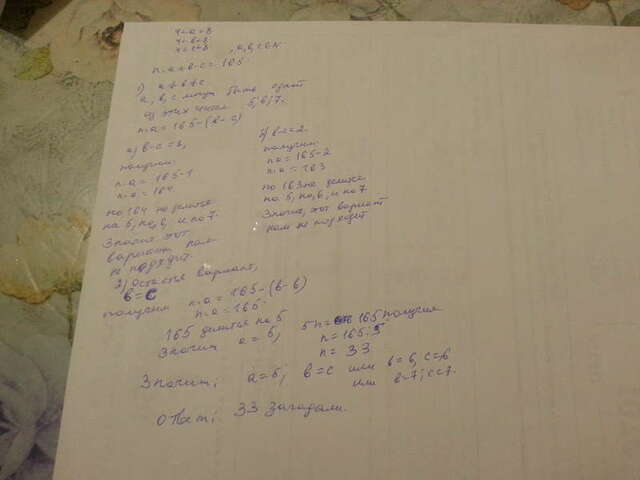 4<a<8
4<b<8
4<c<8 , a, b, c ∈ N
n·a+b-c=165
1) a≠b≠c
a, b, c могут быть одной
из этих чисел 5, 6, 7.
n·a=165-(b-c)
а) b-c=1,
получим:
n·a=165-1
n·a=164
но 164 не делится
на 5, на 6, и на 7.
Значит этот
вариант нам
не подходит.
б) b-c=2
получим:
n·a=165-2
n·a=163
но 163 не делится
на 5, на 6, и на 7
Значит, этот вариант
нам не подходит
2) Остаётся вариант,
b=c
получим n·a=165-(b-b)
n·a=165.
165 делится на 5
Значит a=5,
5n=165 получим
n=165:5
n=33
Значит; a=5; b=c или b=6, c=6
или b=7; c=7.
Ответ; 33 загадали.